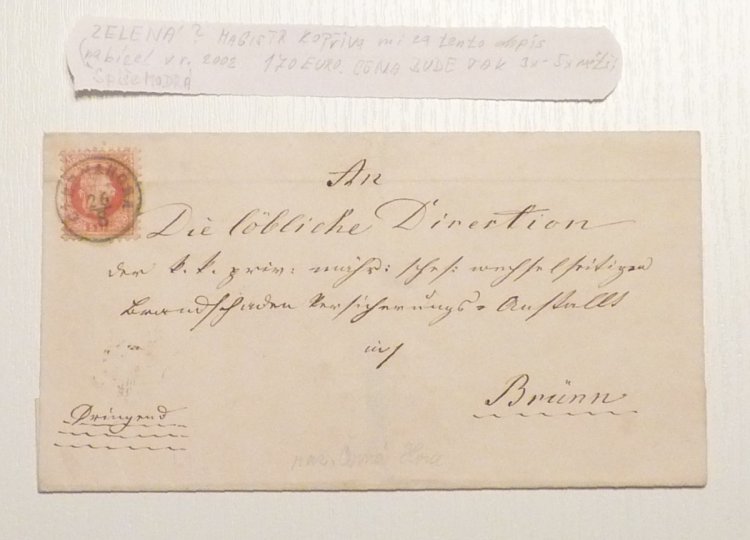 ZELENÁ? MAGISTR KOPŘIVA mi za tento dopis
nabízel v r. 2008 170 EURO. CENA BUDE PAK 3x-5x větší
SPÍŠE MODRÁ
26
8
An
Die löbliche Direction
der k. k. priv: mähr: schles: wechselseitigen
Brandschaden Versicherungs-Anstallt
in
Brünn
Dringend
Černá Hora